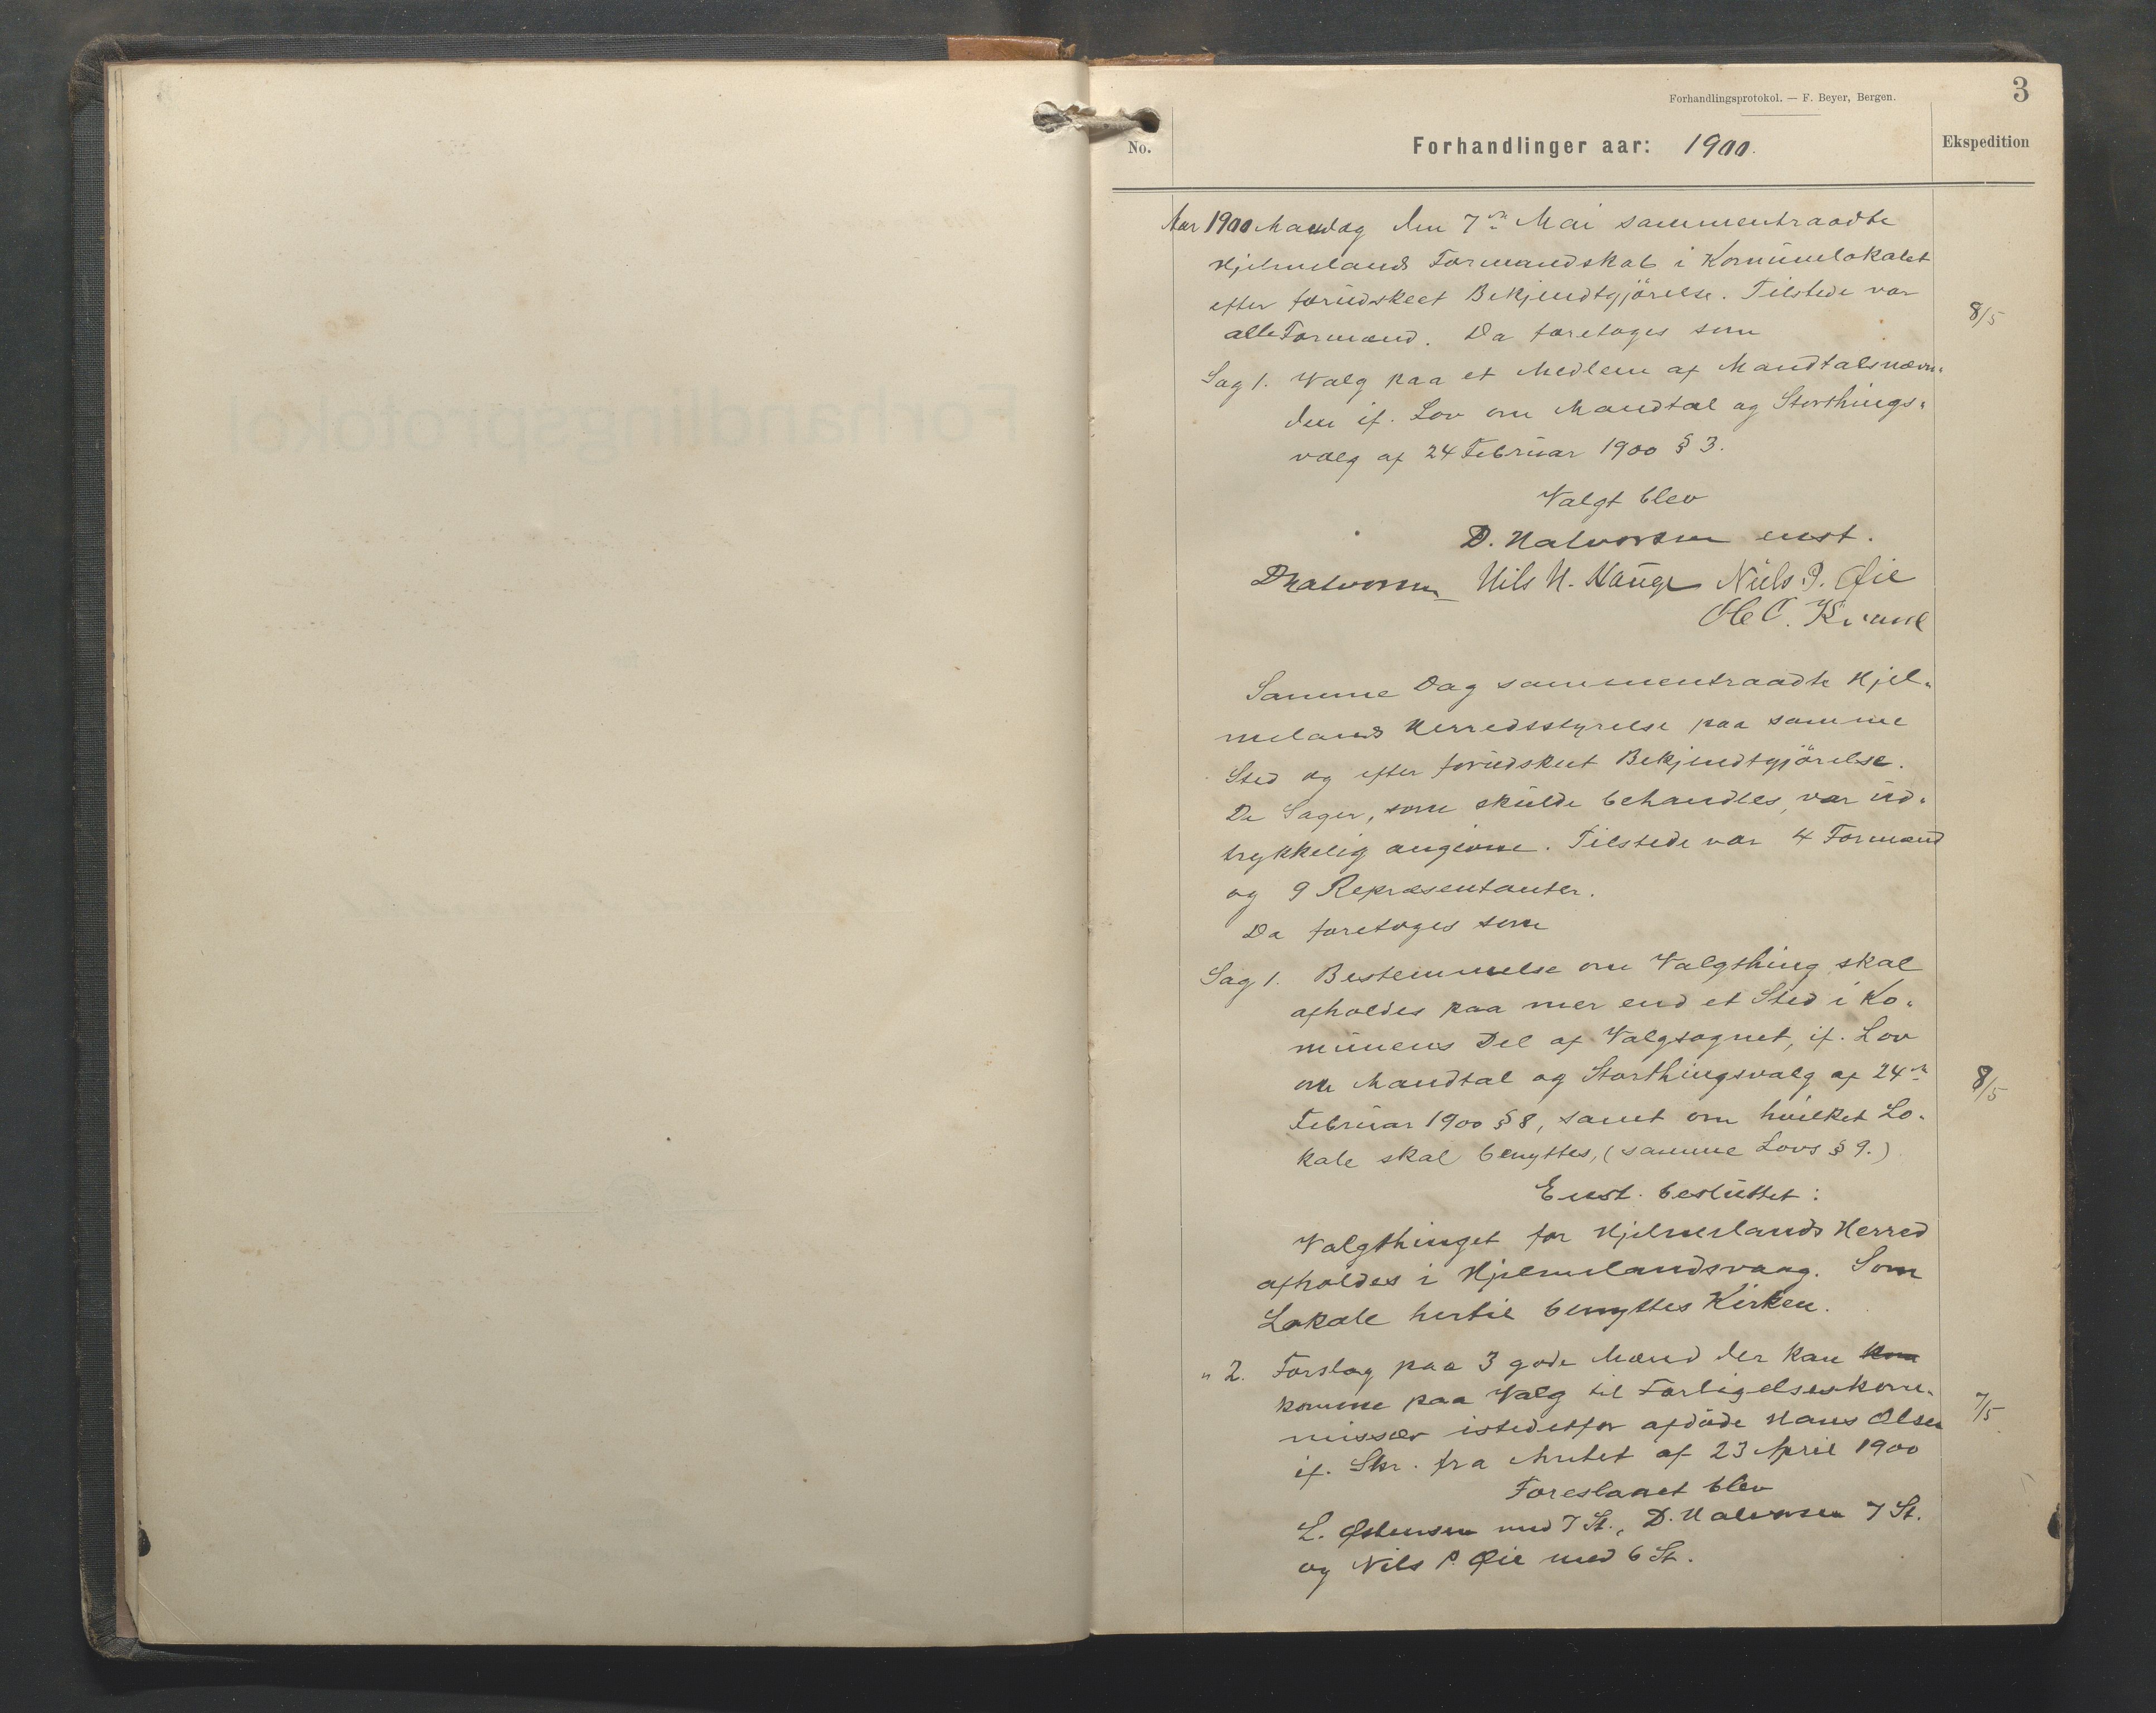 Forhandlingsprotokol. — F. Beyer, Bergen.
3
No.
Forhandlinger aar: 1900.
Ekspedition
Aar 1900 Mandag den 7de Mai sammentraadte
Hjelmelands Formandskab i Komünelokalet
efter forüdskeet Bekjendtgjörelse. Tilstede var
alle Formænd. Da foretoges som
8/5
Sag 1. Valg paa et Medlem af Mandtalsnævn-
den if. Lov om Mandtal og Storthings-
valg af 24 Febrüar 1900 § 3.
Valgt blev
D. Halvorsen enst.
DHalvorsen Nils N. Haüge Niels P. Øie
Ole O. Kvame
Samme Dag sammentraadte Hjel-
melands Herredsstyrelse paa samme
Sted og efter forüdskeet Bekjendtgjörelse.
De Sager, som skülde behandles, var üd-
trykkelig angivne. Tilstede var 4 Formænd
og 9 Repræsentanter.
Da foretoges som
Sag 1. Bestemmelse om Valgthing skal
afholdes paa mer end et Sted i Ko-
münens Del af Valgsognet, if. Lov
om Mandtal og Storthingsvalg af 24de
8/5
Febrüar 1900 § 8, samt om hvilket Lo-
kale skal benyttes, (samme Lovs § 9.)
Enst. beslüttet:
Valgthinget for Hjelmelands Herred
afholdes i Hjelmelandsvaag. Som
Lokale hertil benyttes Kirken.
" 2. Forslag paa 3 gode Mænd der kan kom
komme paa Valg til Forligelseskom-
7/5
missær istedetfor afdöde Hans Olsen
if. Skr. fra Amtet af 23 April 1900
Foreslaaet blev
L. Østensen med 7 St., D. Halvorsen 7 St.
og Nils P. Øie med 6 St.